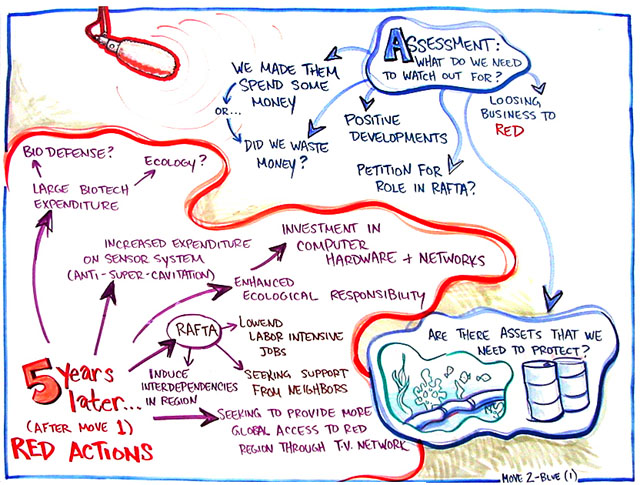 ASSESSMENT:
WHAT DO WE NEED
TO WATCH OUT FOR?
WE MADE THEM
SPEND SOME
MONEY
OR...
DID WE WASTE
MONEY?
POSITIVE
DEVELOPMENTS
PETITION FOR
ROLE IN RAFTA?
LOOSING
BUSINESS TO
RED
BIO DEFENSE?
ECOLOGY?
LARGE BIOTECH
EXPENDITURE
INCREASED EXPENDITURE
ON SENSOR SYSTEM
(ANTI-SUPER-CAVITATION)
INVESTMENT IN
COMPUTER
HARDWARE + NETWORKS
ENHANCED
ECOLOGICAL RESPONSIBILITY
RAFTA
LOWEND
LABOR INTENSIVE
JOBS
INDUCE
INTERDEPENDENCIES
IN REGION
SEEKING SUPPORT
FROM NEIGHBORS
SEEKING TO PROVIDE MORE
GLOBAL ACCESS TO RED
REGION THROUGH T.V. NETWORK
5 Years
later...
(AFTER MOVE 1)
RED ACTIONS
ARE THERE ASSETS THAT WE
NEED TO PROTECT?
MOVE 2-BLUE (1)